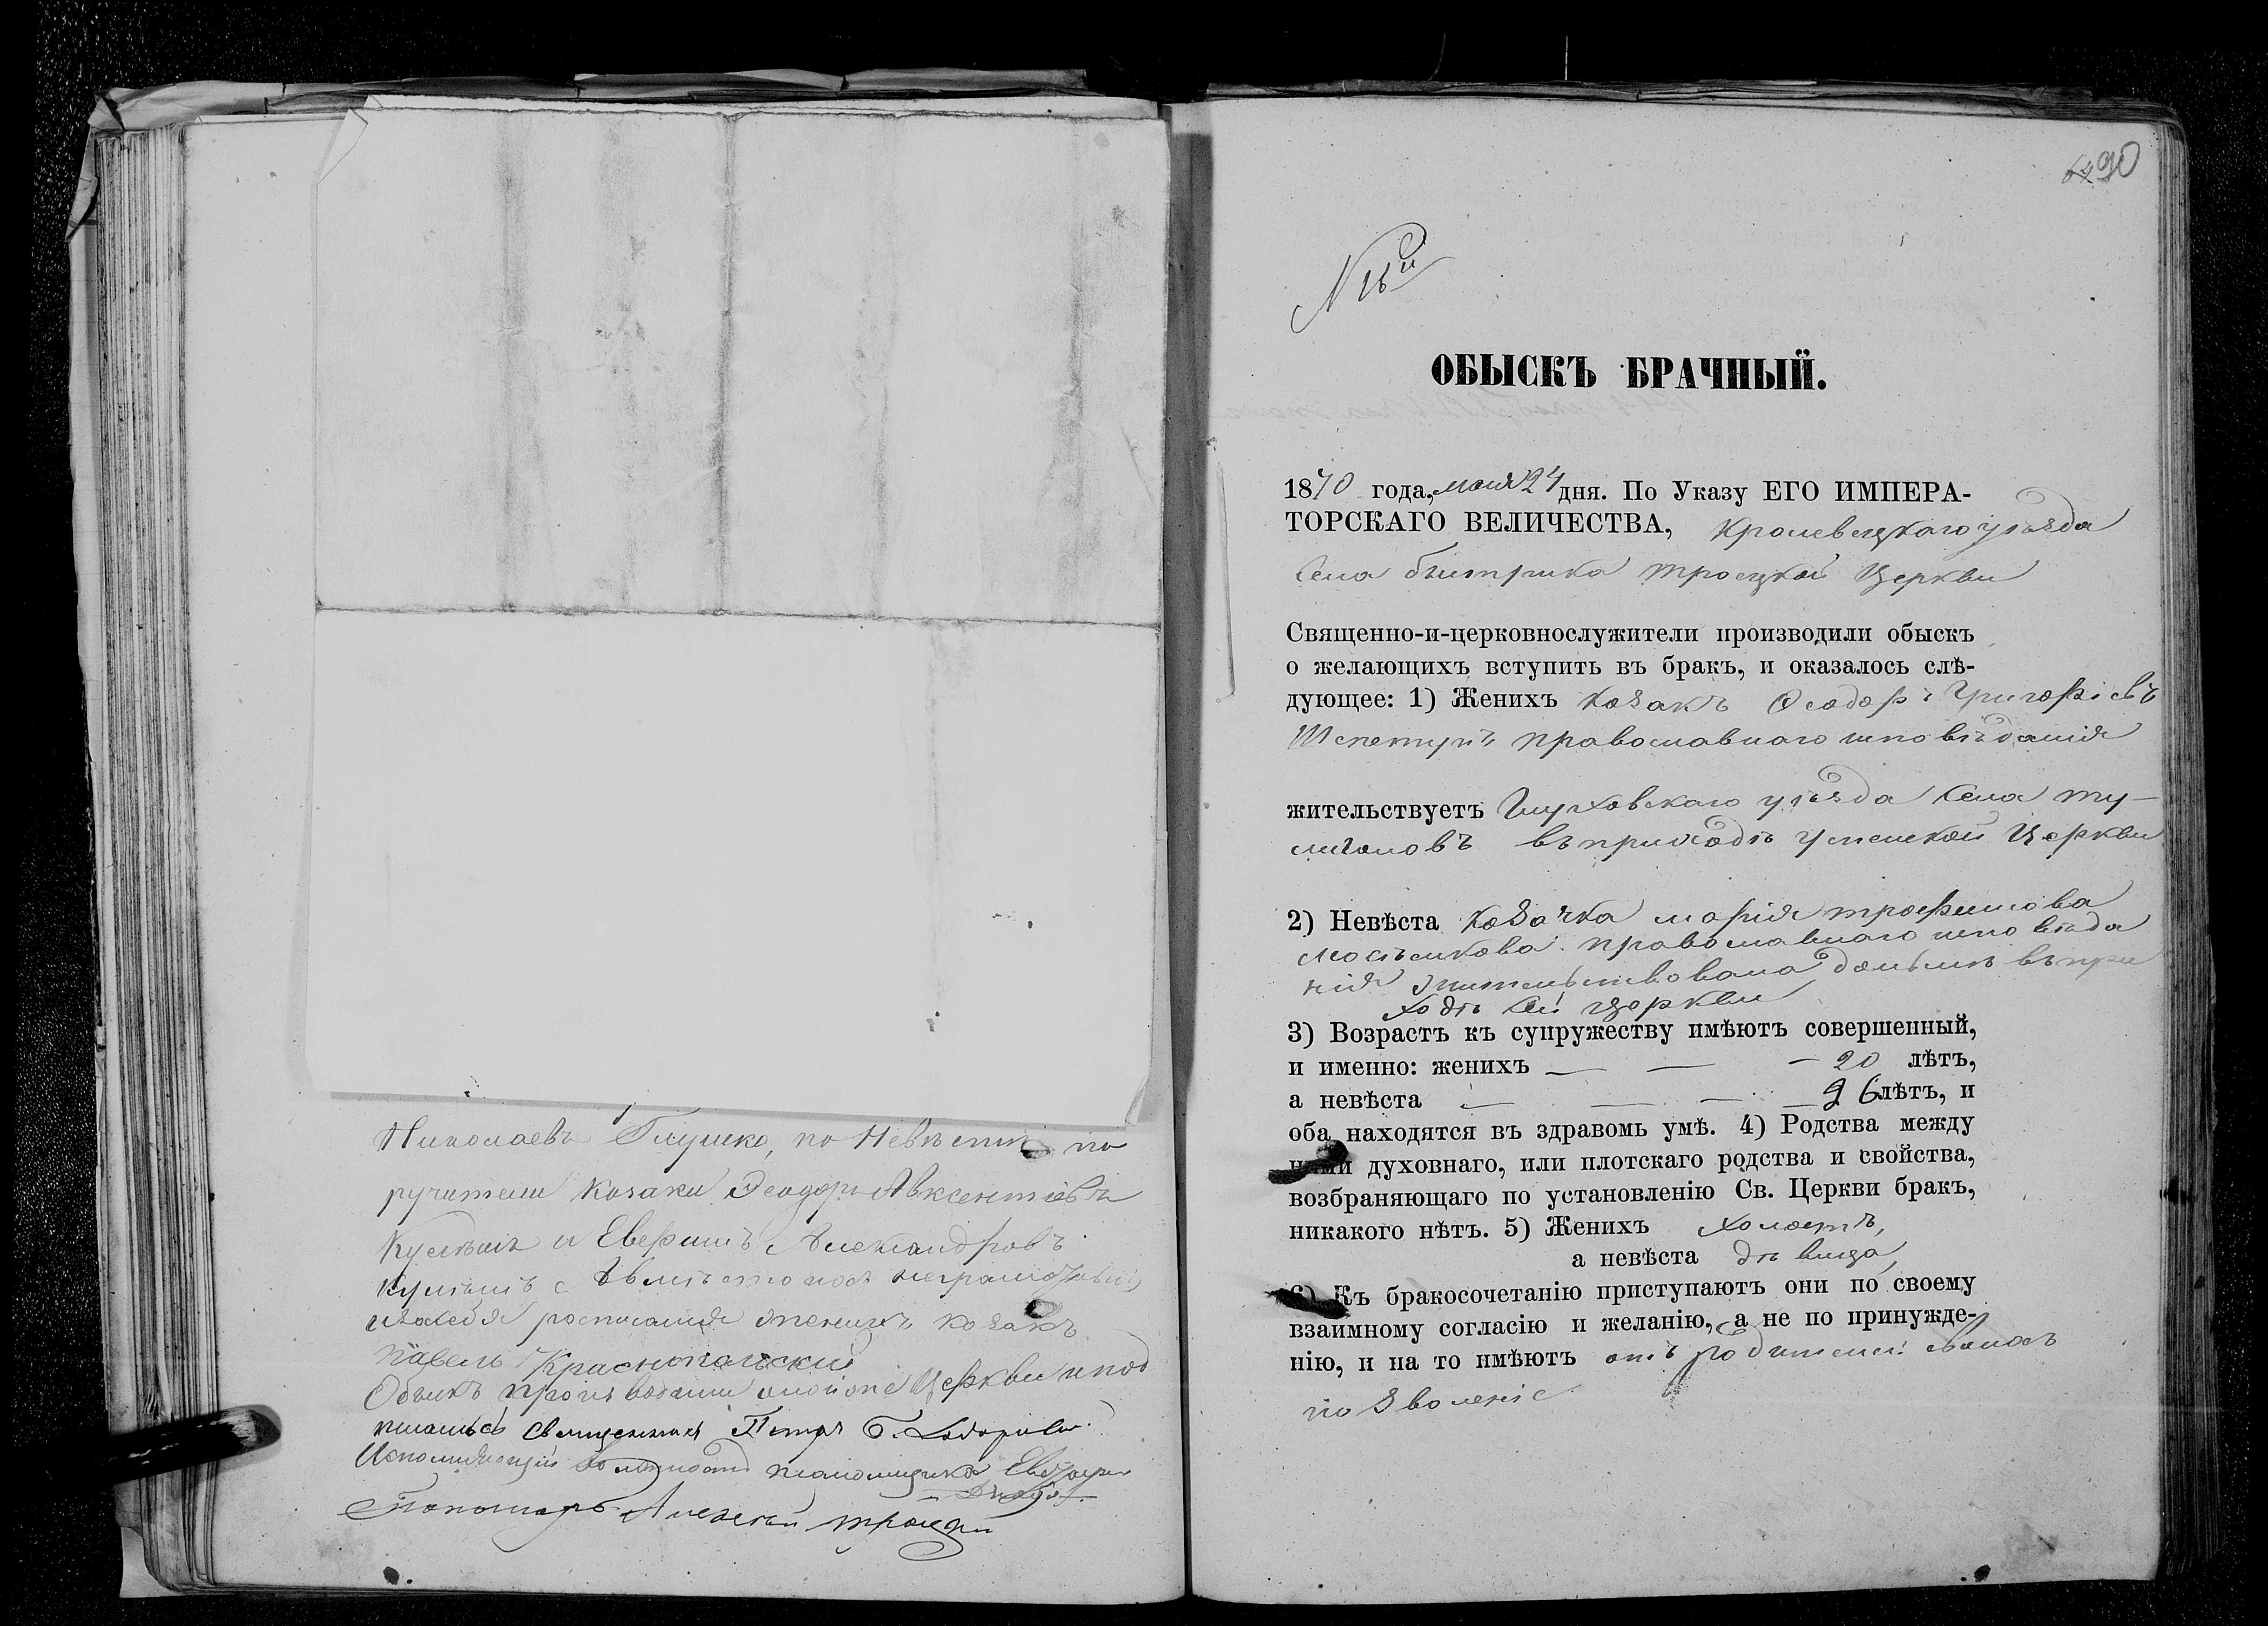 Николаевъ Глушко, по Невѣсти по
ручители козаки Феодоръ Авксентіевъ
и Александровъ
неграмотных
росписался женихъ козакъ
павелъ Краснопольскій
Обыскъ производили оной Церкви и под
писались священникъ Петръ
Исполняющій должность псаломщика
Пономарь Алексѣй троцкій
90
N 16й
ОБЫСКЪ БРАЧНЫЙ.
1870 года, мая 24 дня. По Указу ЕГО ИМПЕРА-
ТОРСКАГО ВЕЛИЧЕСТВА, Кролевецкаго уѣзда
Села быстрика троецкой Церкви
Священно-и-церковнослужители производили обыскъ
о желающихъ вступить въ бракъ, и оказалось слѣ-
дующее: 1) Женихъ козакъ Феодоръ Григоріевъ
Шепетунъ православнаго исповѣданія
жительствуетъ Глуховскаго уѣзда Села ту-
лиголовъ въ приходѣ успенской Церкви
2) Невѣста козачка марія трофимова
православнаго исповѣда
нія жительствовала въ при
ходѣ сей церкви
3) Возрастъ къ супружеству имѣютъ совершенный,
и именно: женихъ — — — 20 лѣтъ,
а невѣста — — — — 26 лѣтъ, и
оба находятся въ здравомь умѣ. 4) Родства между
ними духовнаго, или плотскаго родства и свойства,
возбраняющаго по установленію Св. Церкви бракъ,
никакого нѣтъ. 5) Женихъ холостъ,
а невѣста дѣвица,
6) Къ бракосочетанію приступаютъ они по своему
взаимному согласію и желанію, а не по принужде-
нію, и на то имѣютъ отъ родителей своихъ
позволеніе